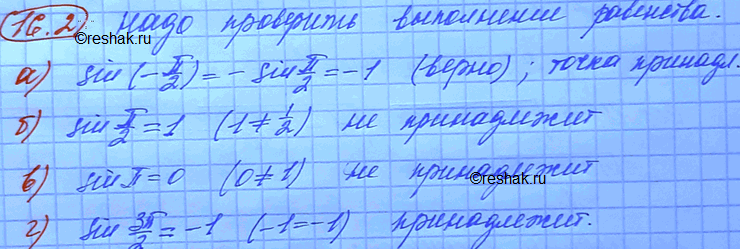 16.2 Надо проверить выполнение равенства.
©reshak.ru
а) sin(-π/2) = -sin π/2 = -1 (верно); точка принадл.
б) sin π/2 = 1 (1 ≠ 1/2) не принадлежит
©reshak.ru
в) sin π = 0 (0 ≠ 1) не принадлежит
©reshak.ru
г) sin 3π/2 = -1 (-1 = -1) принадлежит.